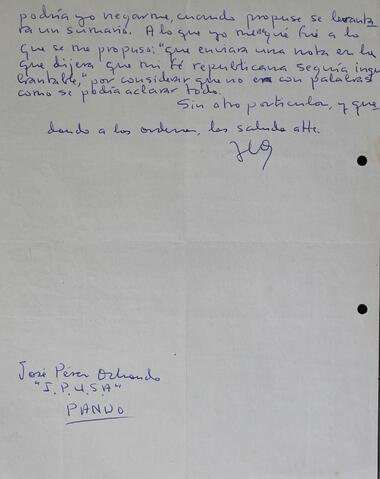 podría yo negarme, cuando propuse se levanta
ra un sumario. A lo que yo me negué fué a lo
que se me propuso: "que enviara una nota en la
que dijera que mi fé republicana seguía inque
brantable," por considerar que no era con palabras
como se podía aclarar todo.
Sin otro particular, y que
dando a los ordenes, les saluda atte.
José Pérez
"I.P.U.S.A"
PANDO